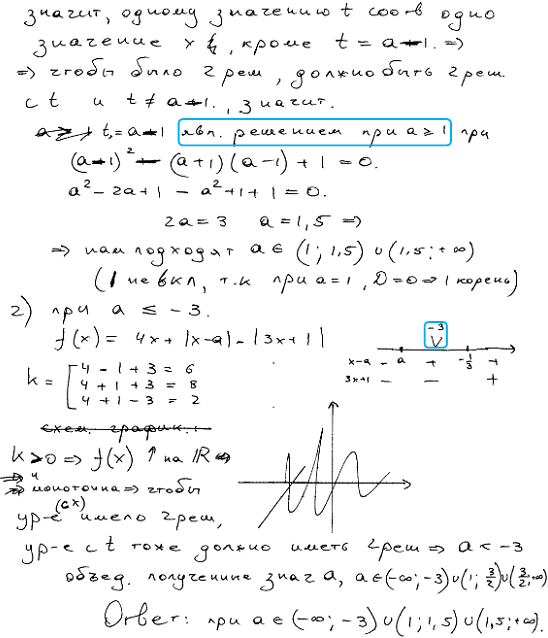 значит, одному значению t соотв одно
значение x, кроме t = a-1. =>
=> чтобы было 2 реш, должно быть 2 реш.
с t и t ≠ a-1., значит.
t₁ = a-1 явл. решением при a ≥ 1 при
(a-1)² - (a+1)(a-1) + 1 = 0.
a² - 2a + 1 - a² + 1 + 1 = 0.
2a = 3 a = 1,5 =>
=> нам подходят a ∈ (1; 1,5) ∪ (1,5; +∞)
(1 не вкл, т.к при a = 1, D = 0 => 1 корень)
2) при a ≤ -3.
f(x) = 4x + |x-a| - |3x+1|
-3
x-a - a + -1/3 +
3x+1 - - +
k = [ 4 - 1 + 3 = 6
4 + 1 + 3 = 8
4 + 1 - 3 = 2
схем. график.:
k > 0 => f(x) ↑ на R
=> монотонна => чтобы
ур-е (с x) имело 2 реш,
ур-е с t тоже должно иметь 2 реш => a < -3
объед. полученные знач a, a ∈ (-∞; -3) ∪ (1; 3/2) ∪ (3/2; +∞)
Ответ: при a ∈ (-∞; -3) ∪ (1; 1,5) ∪ (1,5; +∞).